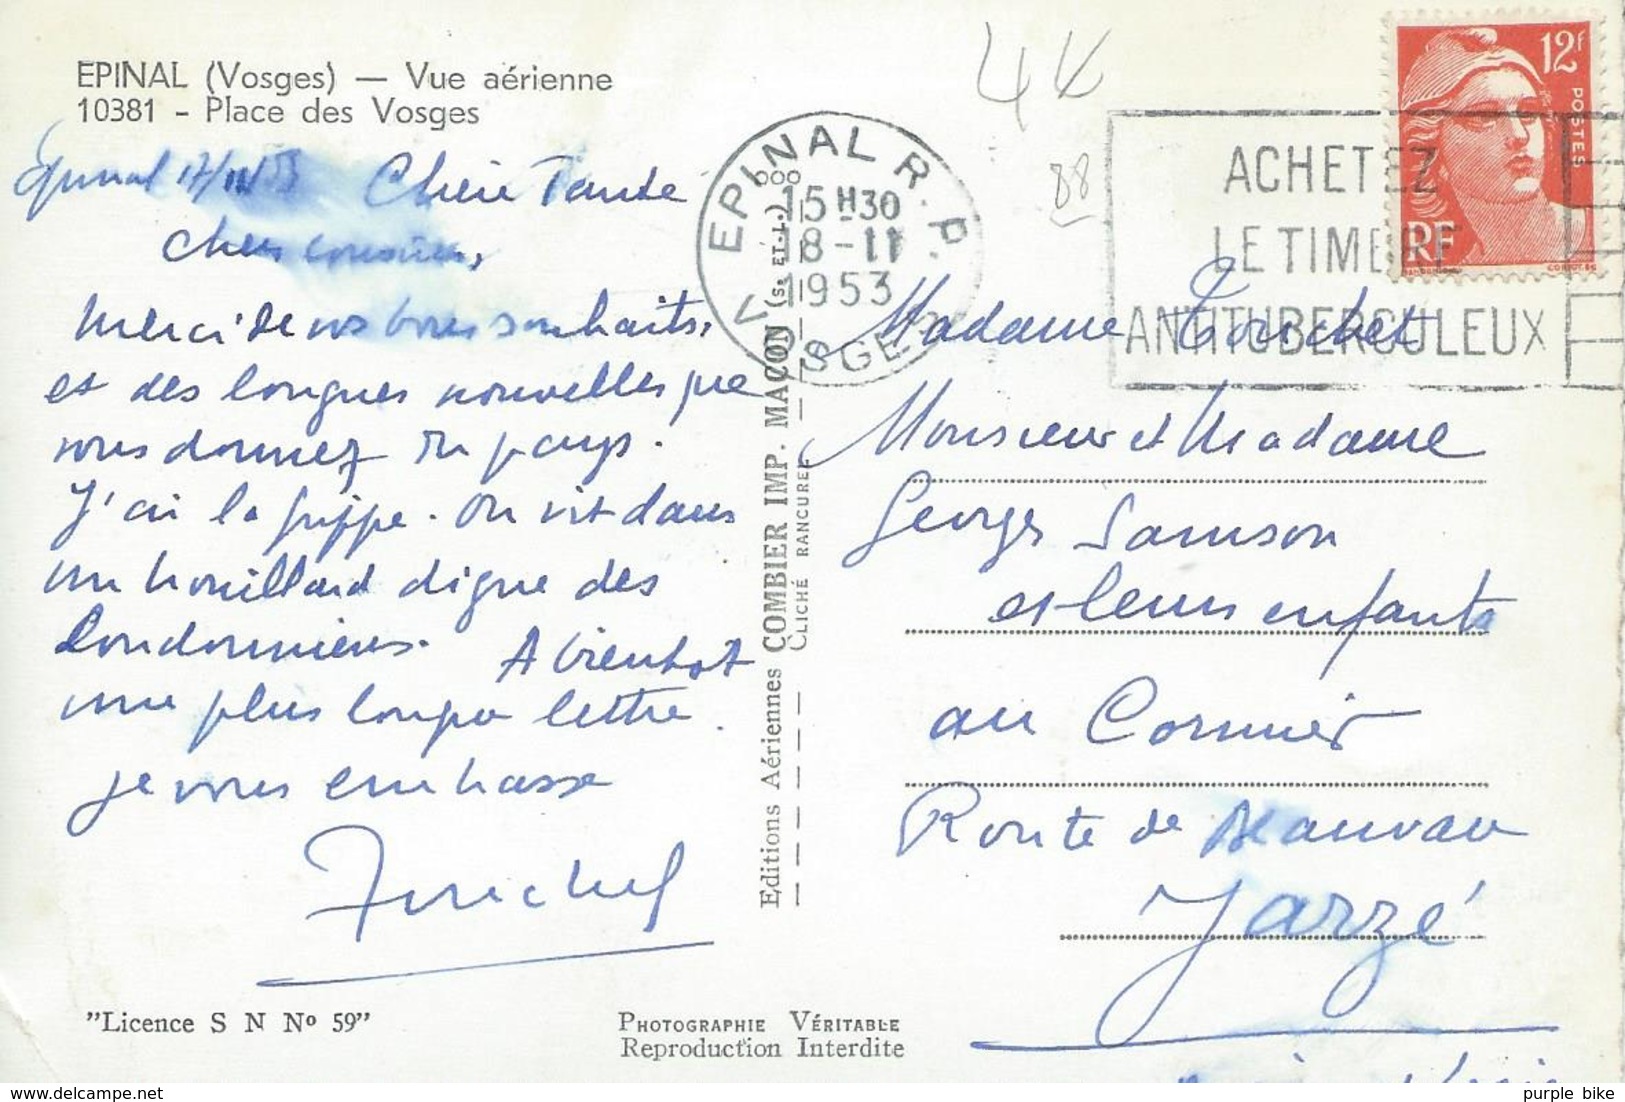 EPINAL (Vosges) — Vue aérienne
10381 - Place des Vosges
Epinal 17/11/53 Chère Tante
Chers cousins,
Merci de vos bons souhaits,
et des longues nouvelles que
vous donnez du pays.
J'ai la grippe. On vit dans
un brouillard digne des
Londonniens. A bientôt
une plus longue lettre.
je vous embrasse
"Licence S N Nº 59"
PHOTOGRAPHIE VÉRITABLE
Reproduction Interdite
Editions Aériennes COMBIER IMP. MACON (S. ET-L.)
CLICHÉ RANCUREL
EPINAL R.P.
15H30
18-11
1953
VOSGES
88
ACHETEZ
LE TIMBRE
ANTITUBERCULEUX
12F
POSTES
RF
Madame Touchet
Monsieur et Madame
Georges Samson
et leurs enfants
au Cormier
Route de Beauvau
Jarzé
delcampe.net
purple bike